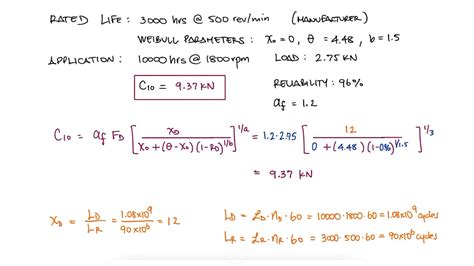 RATED LIFE: 3000 hrs @ 500 rev/min (MANUFACTURER)
WEIBULL PARAMETERS: X₀=0, θ=4.48, b=1.5
APPLICATION: 10000 hrs @ 1800 rpm LOAD: 2.75 KN
C₁₀ = 9.37 KN
RELIABILITY: 96%
af = 1.2
C₁₀ = af F_D [ x_D / (X₀+(θ-X₀)(1-R_D)^(1/b)) ]^(1/a) = 1.2·2.75 [ 12 / (0+(4.48)(1-0.96)^(1/1.5)) ]^(1/3)
= 9.37 KN
X_D = L_D / L_R = 1.08x10⁹ / 90x10⁶ = 12
L_D = ℒ_D·n_D·60 = 10000·1800·60 = 1.08x10⁹ cycles
L_R = ℒ_R·n_R·60 = 3000·500·60 = 90x10⁶ cycles